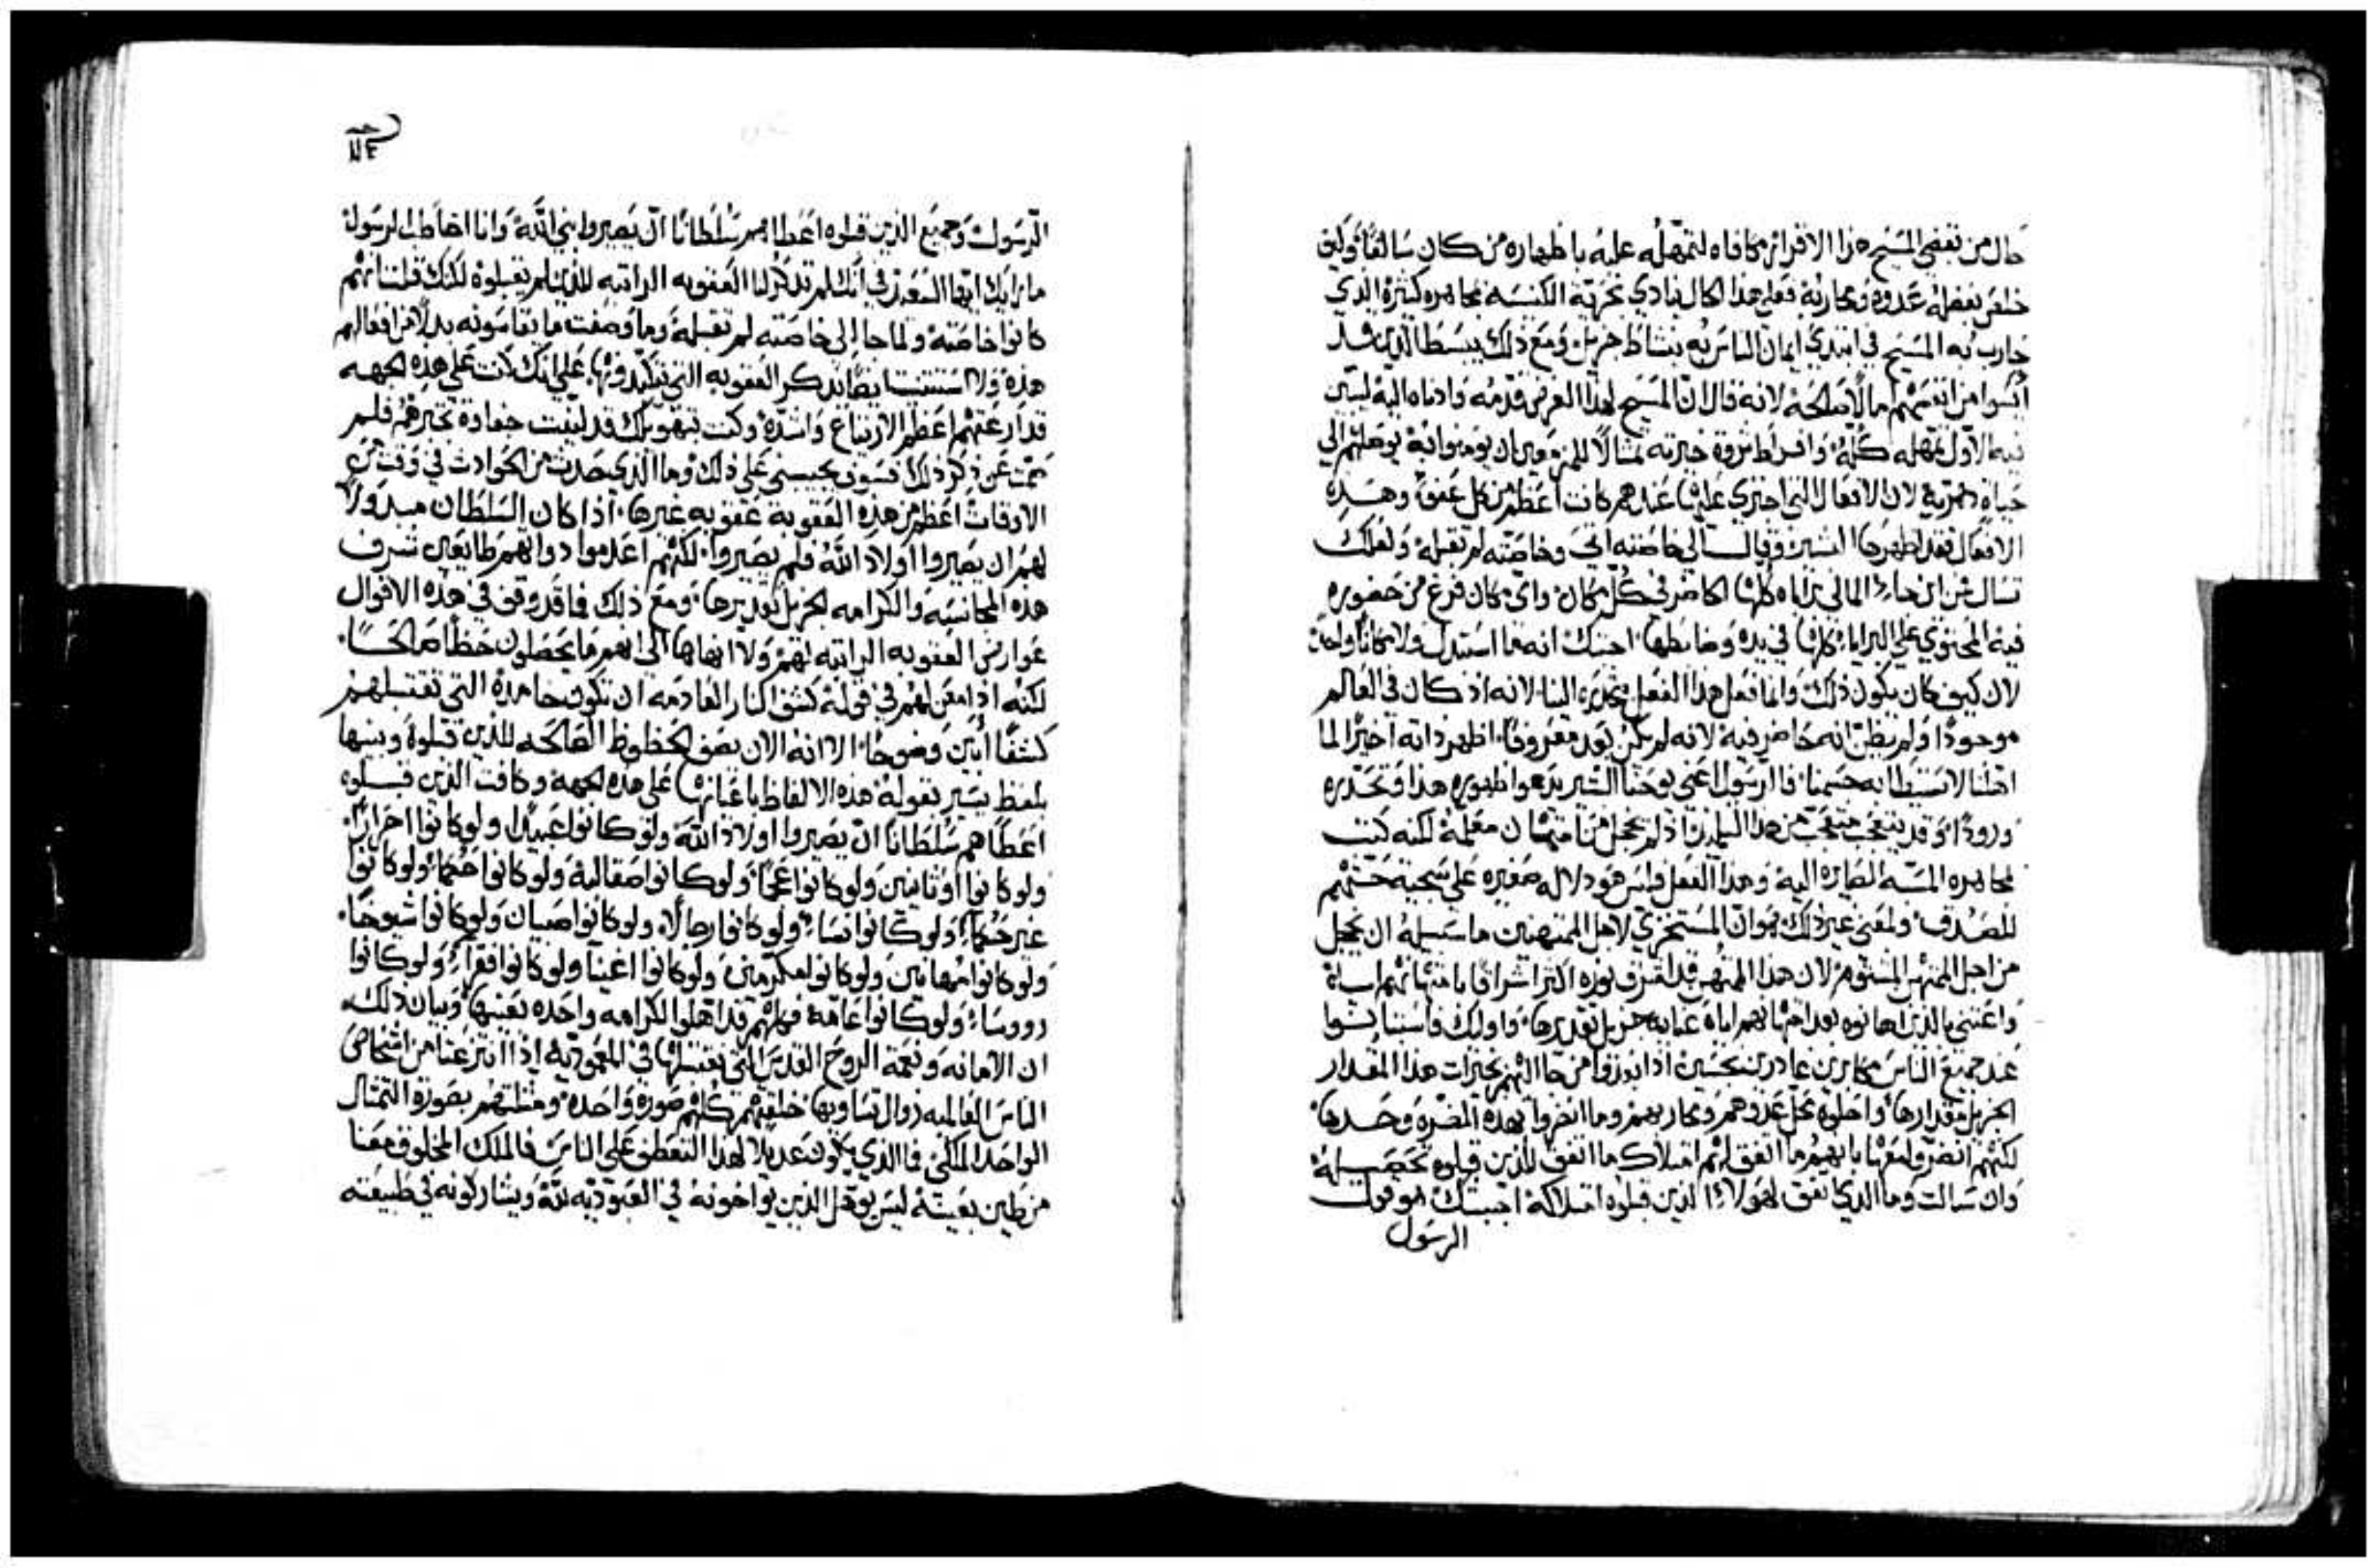 حال من تفضي المسيح هذا الاقرار مكافاه لتمهله عليه باظهاره من كان سالفًا وليف
خلفر بفضله عدوه ومحاربه فعلي هذا الحال ينادي بحرية الكنيسه مجاهره كثيرة الذي
حارب به المسيح في ابتدي ايمان الناس به بنشاط جزيل ومع ذلك يبسط الذين قد
ايسوا من انفسهم امالًا صالحه لانه قال ان المسيح لهذا الغرض قدمه وادناه اليه ليبين
فيه الاول تمهله كله وافراط ثروة خيرته تمثالًا للمزمعين ان يومنوا به يوصلهم الي
حياة دهرية لان الافعال التي اجتري عليها عندهم كانت اعظم من كل عفو وهذه
الافعال فقد اظهرها البشير وقال الي خاصته اتي وخاصته لم تقبله ولعلك
تسال من اين جاء المالي براياه كلها الحاضر في كل مكان واي مكان فرغ من حضوره
فيه المحتوي علي البرايا كلها في يده وضابطها اجبتك انه ما استبدل ولا مكانًا واحدًا
لان كيف كان يكون ذلك وانما فعل هذا الفعل بتحدره الينا لانه اذ كان في العالم
موجودًا ولم يظن انه حاضر فيه لانه لم يكن بعد معروفًا اظهر ذاته اخيرًا لما
اهلنا لاستبطانه جسمنا فالرسول اعني يوحنا البشير يدعوا ظهوره هذا وتحدره
ورودًا وقد يتعجب متعجب من هذا التلميذ اذ لم يخجل من امتهان معلمه لكنه كتب
مجاهره المسبه الصايره اليه وهذا الفعل فليس هو دلاله صغيره علي سجية حشمتهم
للصدق ولمعني غير ذلك هو ان المستخزي لاهل الممتهنين ما سبيله ان يخجل
من اجل الممتهن المشتوم لان هذا الممتهن قد اشرق نوره اكثر اشراقًا بامتهانهم اياه
واعتني بالذين اهانوه بعد امتهانهم اياه عنايه جزيل تقديرها واوليك فاستبانوا
عند جميع الناس مكابرين غادرين نجسين اذا ابعدوا من جا اليهم بخيرات هذا المقدار
الجزيل مقدارها واحلوه محل عدوهم ومحاربهم وما انضروا بهذه المضره وحدها
لكنهم انضروا معها بابهم ما اتفق لهم امتلاك ما اتفق للذين قبلوه تحصيله
وان سالت وما الذي اتفق لهولاء الذين قبلوه امتلاكه اجبتك هو قول
الرسول
الرسول وجميع الذين قبلوه اعطاهم سلطانًا ان يصيروا بني الله وانا اخاطب الرسول
ما رايك ايها السعيد في انك لم تذكر لنا العقوبه الراتبه للذين لم يقبلوه لكنك قلت انهم
كانوا خاصته ولما جا الي خاصته لم تقبله وما وصفت ما يقاسونه بدلًا من افعالهم
هذه ولا استثنيت ايضًا بذكر العقوبه التي يتكبدونها علي انك لو كنت علي هذه الجهه
قد ارعبتهم اعظم الارتياع واشده وكنت بتهويلك قد لينت جفاوة تجبرهم فلم
صمت عن ذكر ذلك فسوف يجيبني علي ذلك وما الذي حدث من الحوادث في وقت من
الاوقات اعظم من هذه العقوبة عقوبه غيرها اذا كان السلطان مبذولًا
لهم ان يصيروا اولاد الله فلم يصيروا لكنهم اعدموا ذواتهم طايعين شرف
هذه المجانسه والكرامه الجزيل تقديرها ومع ذلك فما قد وقف في هذه الاقوال
عوارض العقوبه الراتبه لهم ولا انهاها الي انهم ما يحصلون حظًا صالحًا
لكنه اذا امعن لهم في قوله كشف النار العادمه ان تكون جامده التي تقتبلهم
كشفًا ابين وضوحًا الا انه الان يصف الحظوظ الصالحه للذين قبلوه ويبينها
بلفظ يسير بقوله هذه الالفاظ باعيانها علي هذه الجهه وكافة الذين قبلوه
اعطاهم سلطانًا ان يصيروا اولاد الله ولو كانوا عبيدًا ولو كانوا احرارًا
ولو كانوا اوثانيين ولو كانوا عجمًا ولو كانوا صقالبة ولو كانوا حكما ولو كانوا
غير حكما ولو كانوا نساء ولو كانوا رجالًا ولو كانوا صبيان ولو كانوا شيوخًا
ولو كانوا مهانين ولو كانوا مكرمين ولو كانوا اغنيا ولو كانوا فقرآء ولو كانوا
رووساء ولو كانوا عامة فكلهم قد اهلوا لكرامه واحده بعينها وبيان ذلك
ان الامانه ونعمة الروح القدس التي نقتبلها في المعمودية اذا انتزعتا من اشخاص
الناس العالميه زوال تساويها خلقتهم كلهم صورة واحدة ومثلتهم بصورة التمثال
الواحد الملكي فما الذي يكون عديلًا لهذا التعطف علي الناس فالملك المخلوق معنا
من طين بعينه ليس يوهل الذين يواخونه في العبوديه لله ويشاركونه في طبيعته